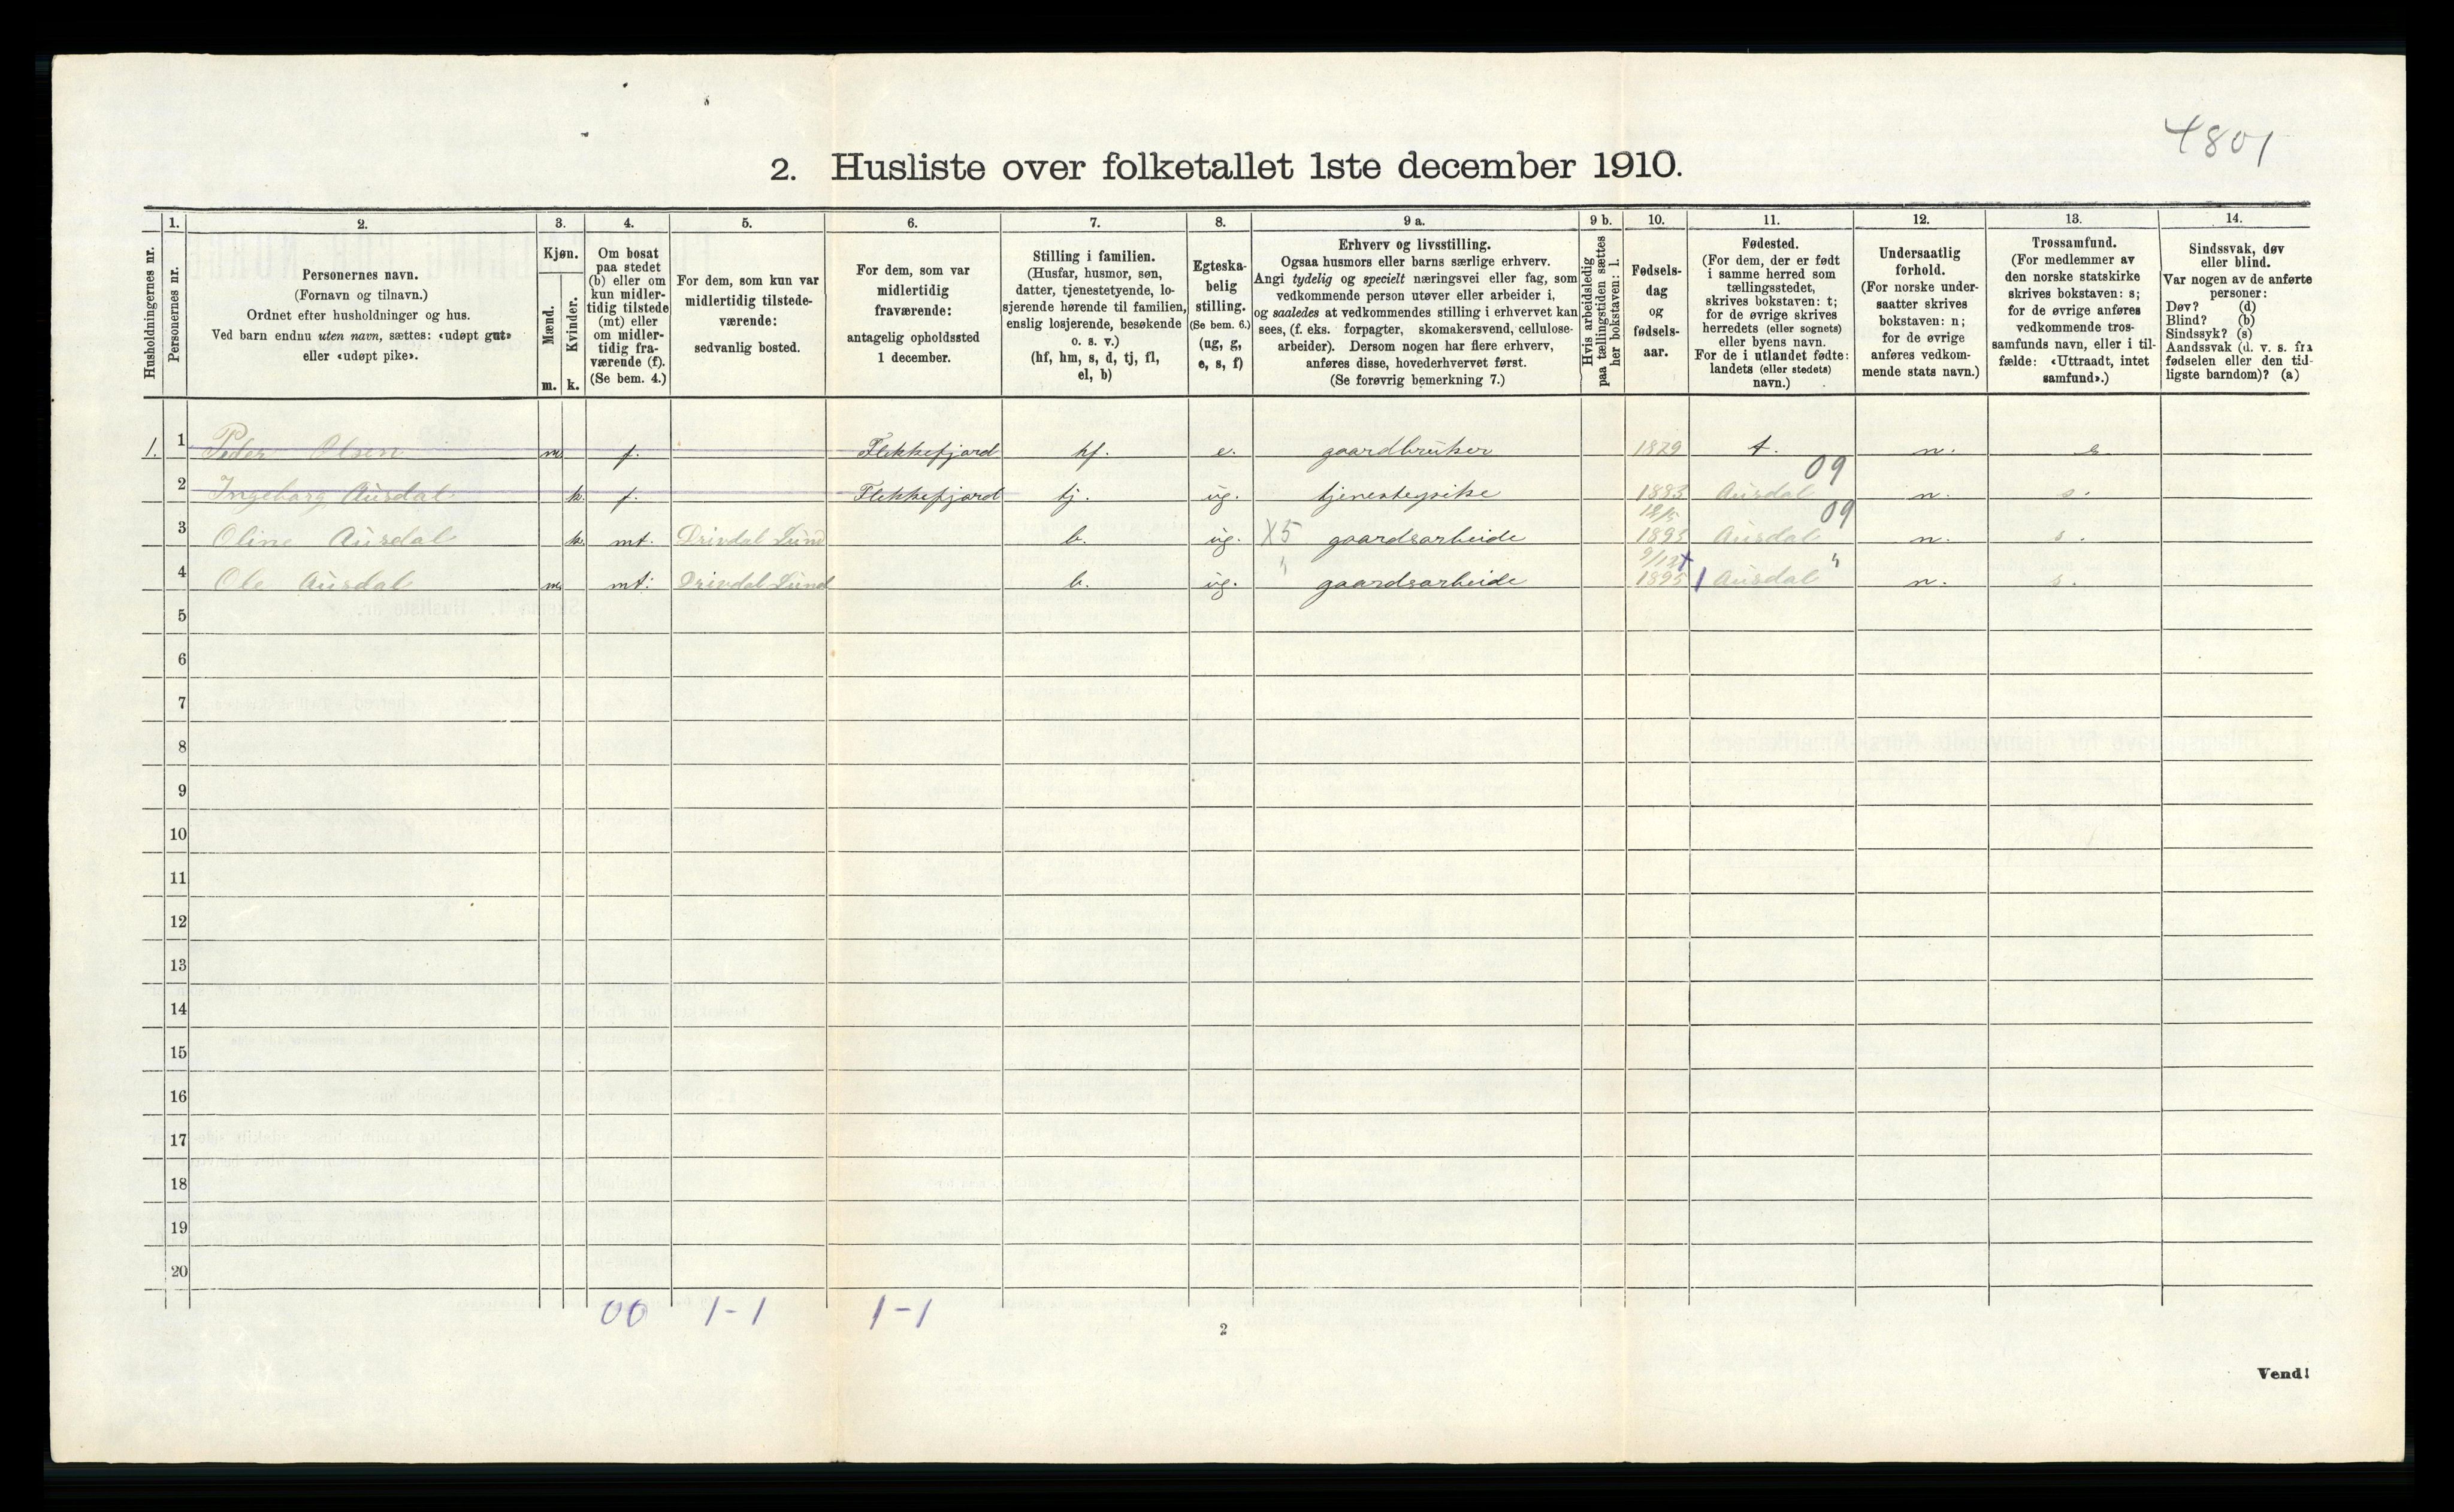 4801
2. Husliste over folketallet 1ste december 1910.
Husholdningernes nr.
1.
Personernes nr.
2.
Personernes navn.
(Fornavn og tilnavn.)
Ordnet efter husholdninger og hus.
Ved barn endnu uten navn, sættes: «udøpt gut»
eller «udøpt pike».
3.
Kjøn.
Mænd.
Kvinder.
m. k.
4.
Om bosat
paa stedet
(b) eller om
kun midler-
tidig tilstede
(mt) eller
om midler-
tidig fra-
værende (f).
(Se bem. 4.)
5.
For dem, som kun var
midlertidig tilstede-
værende:
sedvanlig bosted.
6.
For dem, som var
midlertidig
fraværende:
antagelig opholdssted
1 december.
7.
Stilling i familien.
(Husfar, husmor, søn,
datter, tjenestetyende, lo-
sjerende hørende til familien,
enslig losjerende, besøkende
o. s. v.)
(hf, hm, s, d, tj, fl,
el, b)
8.
Egteska-
belig
stilling.
(Se bem. 6.)
(ug, g,
e, s, f)
9 a.
Erhverv og livsstilling.
Ogsaa husmors eller barns særlige erhverv.
Angi tydelig og specielt næringsvei eller fag, som
vedkommende person utøver eller arbeider i,
og saaledes at vedkommendes stilling i erhvervet kan
sees, (f. eks. forpagter, skomakersvend, cellulose-
arbeider). Dersom nogen har flere erhverv,
anføres disse, hovederhvervet først.
(Se forøvrig bemerkning 7.)
9 b.
Hvis arbeidsledig
paa tællingstiden sættes
her bokstaven: l.
10.
Fødsels-
dag
og
fødsels-
aar.
11.
Fødested.
(For dem, der er født
i samme herred som
tællingsstedet,
skrives bokstaven: t;
for de øvrige skrives
herredets (eller sognets)
eller byens navn.
For de i utlandet fødte:
landets (eller stedets)
navn.)
12.
Undersaatlig
forhold.
(For norske under-
saatter skrives
bokstaven: n;
for de øvrige
anføres vedkom-
mende stats navn.)
13.
Trossamfund.
(For medlemmer av
den norske statskirke
skrives bokstaven: s;
for de øvrige anføres
vedkommende tros-
samfunds navn, eller i til-
fælde: «Uttraadt, intet
samfund».)
14.
Sindssvak, døv
eller blind.
Var nogen av de anførte
personer:
Døv? (d)
Blind? (b)
Sindssyk? (s)
Aandssvak (d. v. s. fra
fødselen eller den tid-
ligste barndom)? (a)
1. 1 Peder Olsen m f. Flekkefjord hf. e. gaardbruker 1829 t. n. s.
2 Ingeborg Ausdal k. f. Flekkefjord tj. ug. tjenestepike 1883 Ausdal 09 n. s.
3 Oline Ausdal k. mt. Drivdal Lund b. ug. X5 gaardsarbeide 18/5 1893 Ausdal 09 n. s.
4 Ole Ausdal m mt. Drivdal Lund b. ug. " gaardsarbeide 9/12 1895 Ausdal " n. s.
5
6
7
8
9
10
11
12
13
14
15
16
17
18
19
20
00 1-1 1-1
2
Vend!